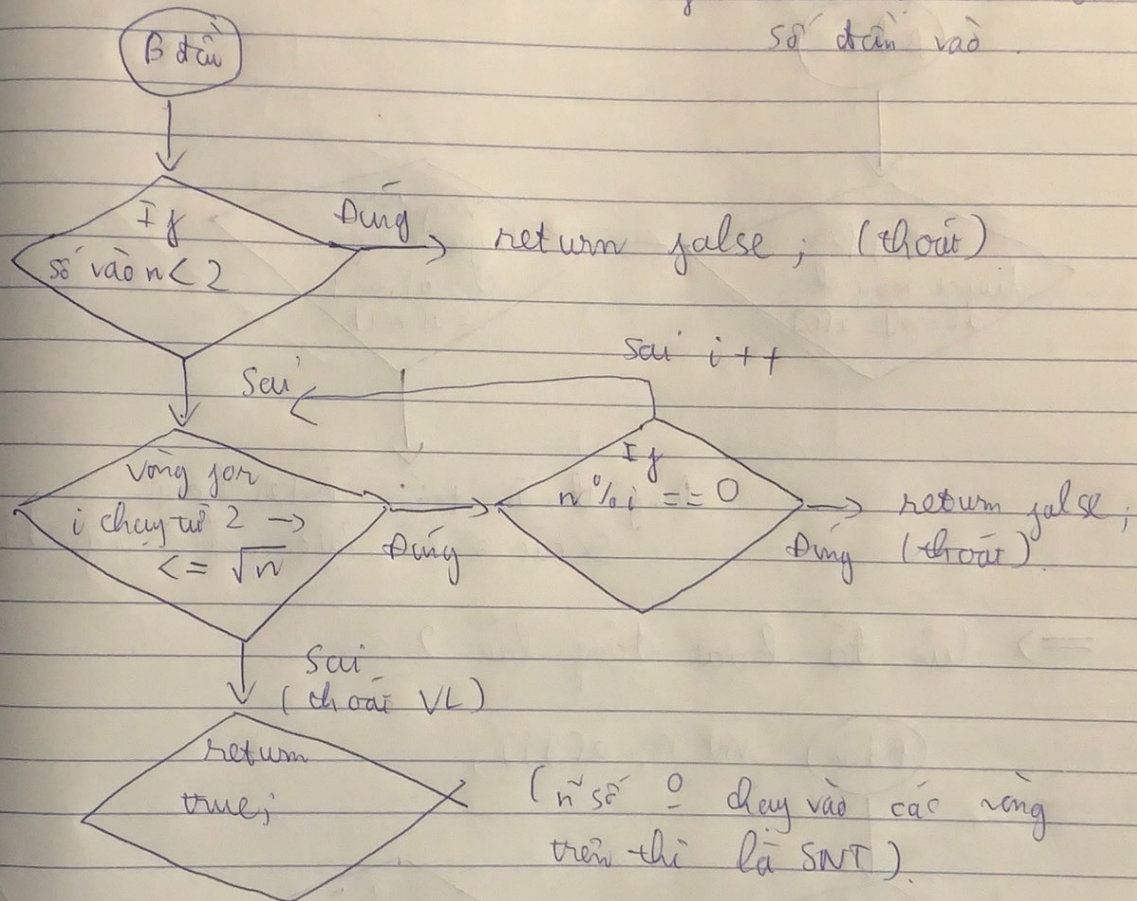 số đầu vào.
B đầu
If
số vào n < 2
Đúng
return false; (thoát)
Sai
Sai i++
vòng for
i chạy từ 2 →
<= √n
Đúng
If
n % i == 0
Đúng
return false;
(thoát).
Sai
(thoát VL)
return
true;
(n~ số o chạy vào các vòng
trên thì là SNT).